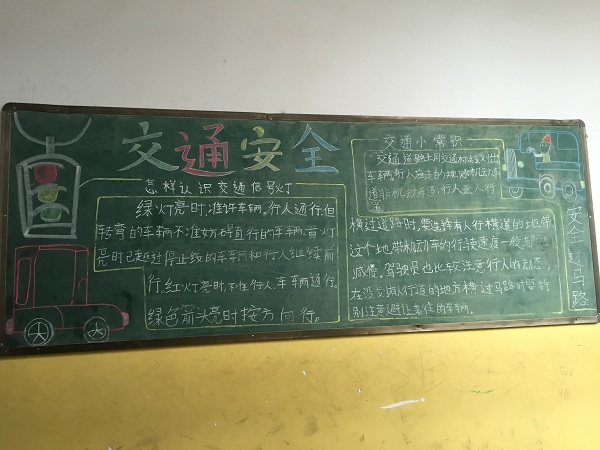 交通安全
怎样认识交通信号灯
绿灯亮时:准许车辆。行人通行但
转弯的车辆不准妨碍直行的车辆、黄灯
亮时已越过停止线的车车辆和行人继续前
行,红灯亮时,不准行人,车车辆通行。
绿色箭头亮时按方向行。
交通小常识
交通道路上用交通标线划出
车辆,行人应走的规则机动车
道非机动车道,行人走人行
道
横过道路时,要选择有人行横道的地带
这个地带机动车的行驶速度一般都
减慢。驾驶员也比较注意行人的动态,
在没划人行道的地方横过马路时要特
别注意避让来往的车辆。
安全过马路